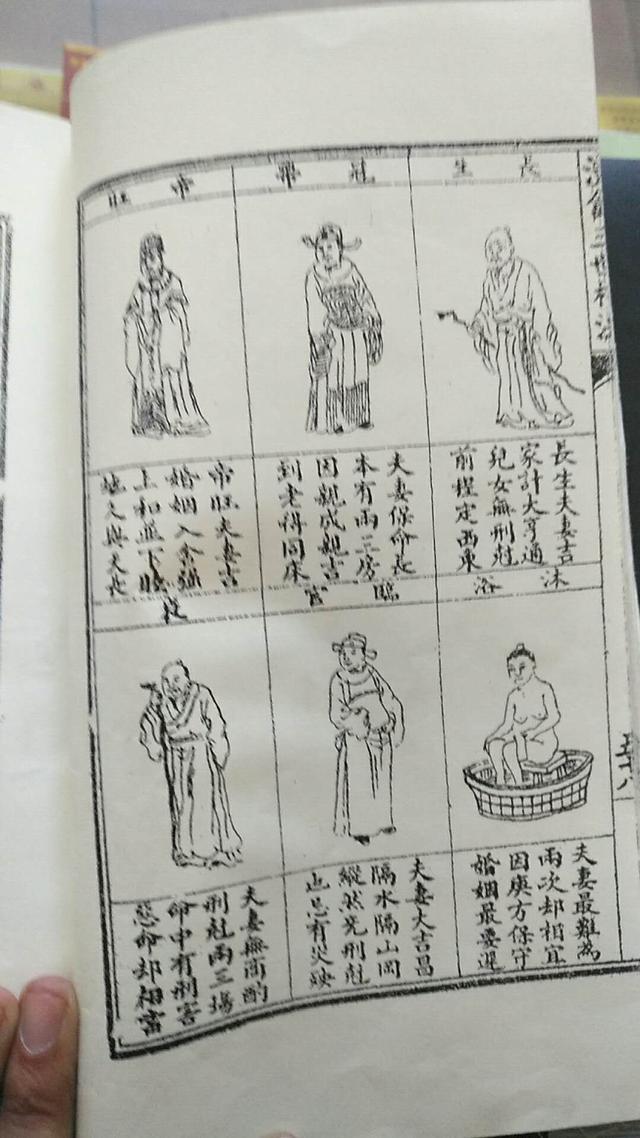 演禽三世相法
長生
長生夫妻吉
家計大亨通
兒女無刑尅
前程定西東
冠帶
夫妻保命長
本有兩三房
因親成親吉
到老得同床
帝旺
帝旺夫妻吉
婚姻入
上和並下睦
地久與天長
沐浴
夫妻最難為
兩次却相宜
因庚方保守
婚姻最要遲
臨官
夫妻大吉昌
隔水隔山岡
縱然免刑尅
也忌有災殃
衰
夫妻無商酌
刑尅兩三場
命中有刑害
惡命却相當
五十八